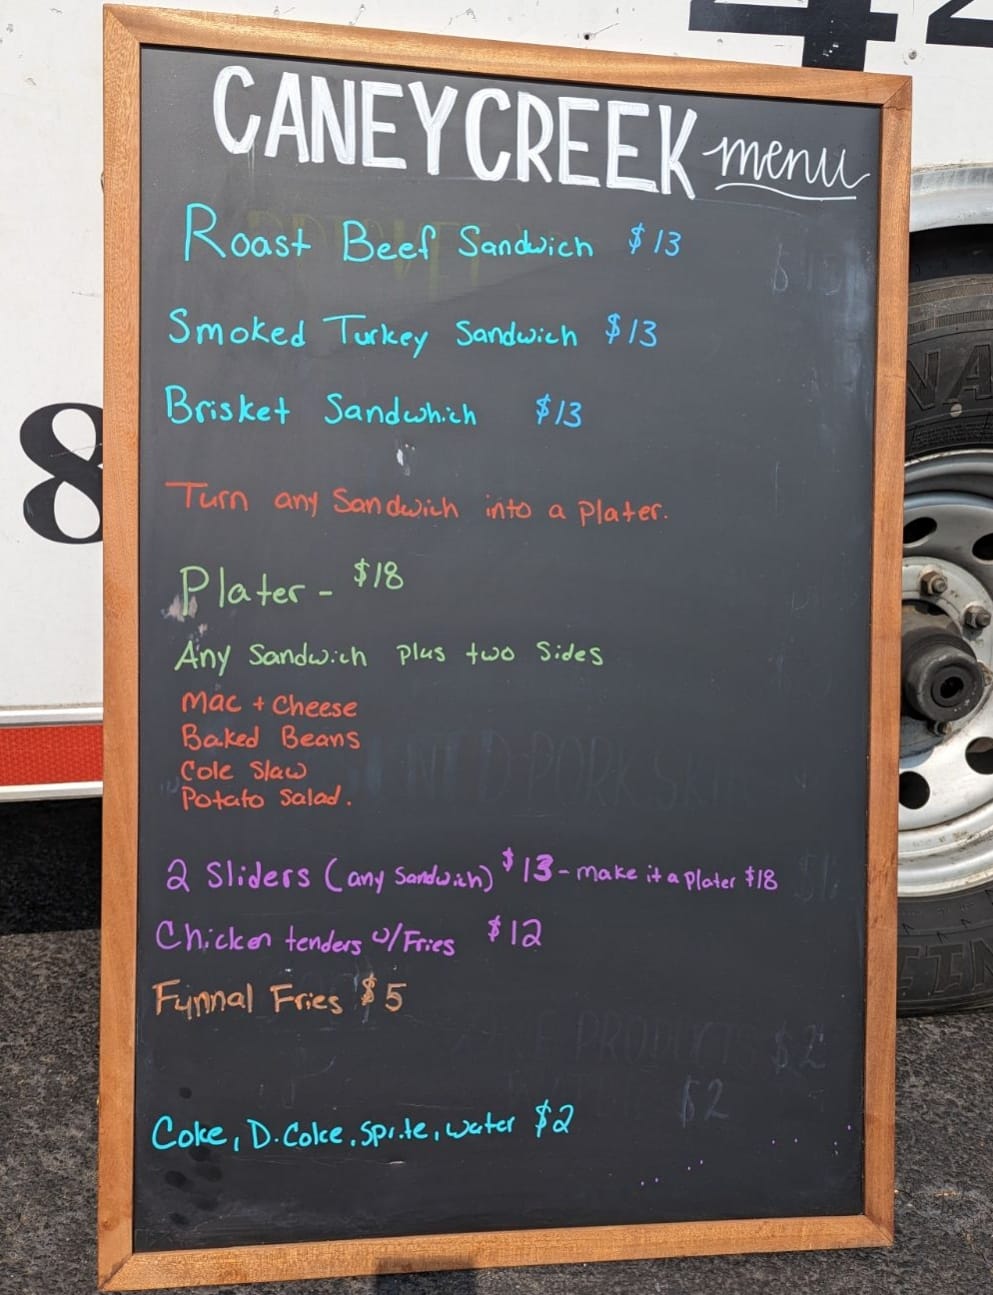 CANEY CREEK menu
Roast Beef Sandwich $13
Smoked Turkey Sandwich $13
Brisket Sandwhich $13
Turn any Sandwich into a Plater.
Plater - $18
Any Sandwich plus two Sides
Mac + Cheese
Baked Beans
Cole Slaw
Potato Salad.
2 Sliders (any Sandwich) $13 - make it a Plater $18
Chicken tenders w/Fries $12
Fynnal Fries $5
Coke, D.Coke, Sprite, water $2
8